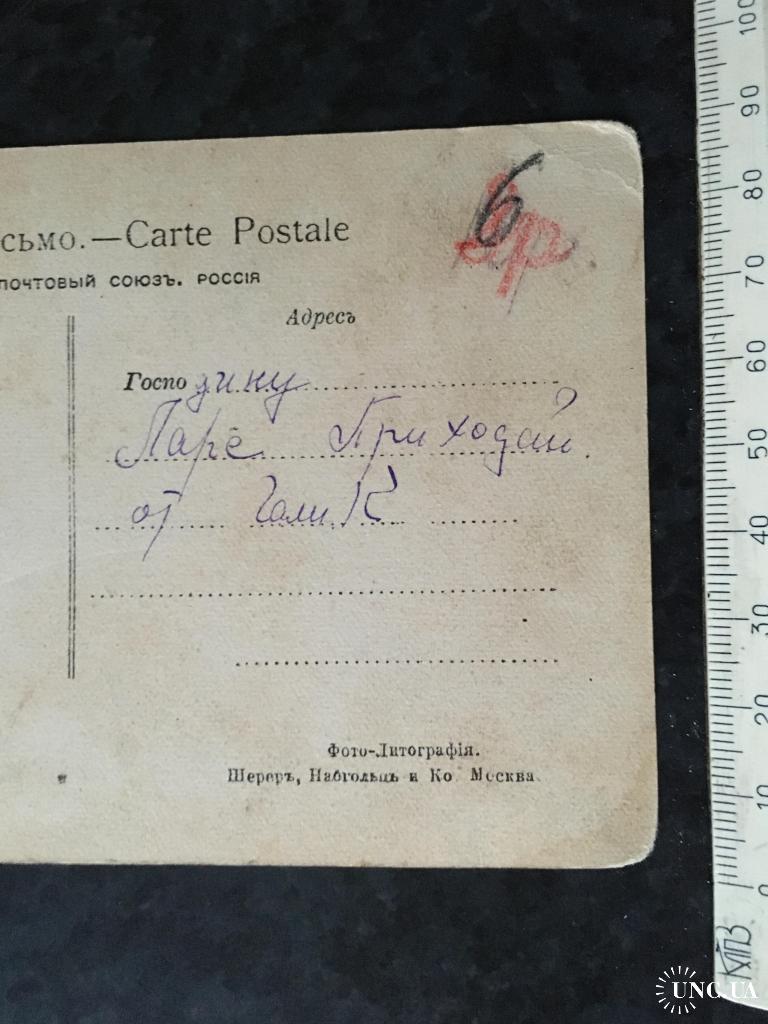 сьмо.—Carte Postale
6
почтовый союзъ. россія
Адресъ
Господину
Ларе Приходай
от Гали К
Фото-Литографія.
Шереръ, Набгольцъ и Ко Москва
100
90
80
70
60
50
40
30
20
10
0
UNC.UA